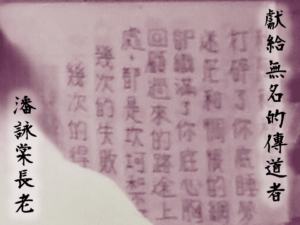 獻給無名的傳道者
打碎了你底睡夢
迷茫和惆悵的網
卻織滿了你底心胸
回顧過來的路途上
處，都是坎坷
幾次的失敗
幾次的得
潘詠棠長老